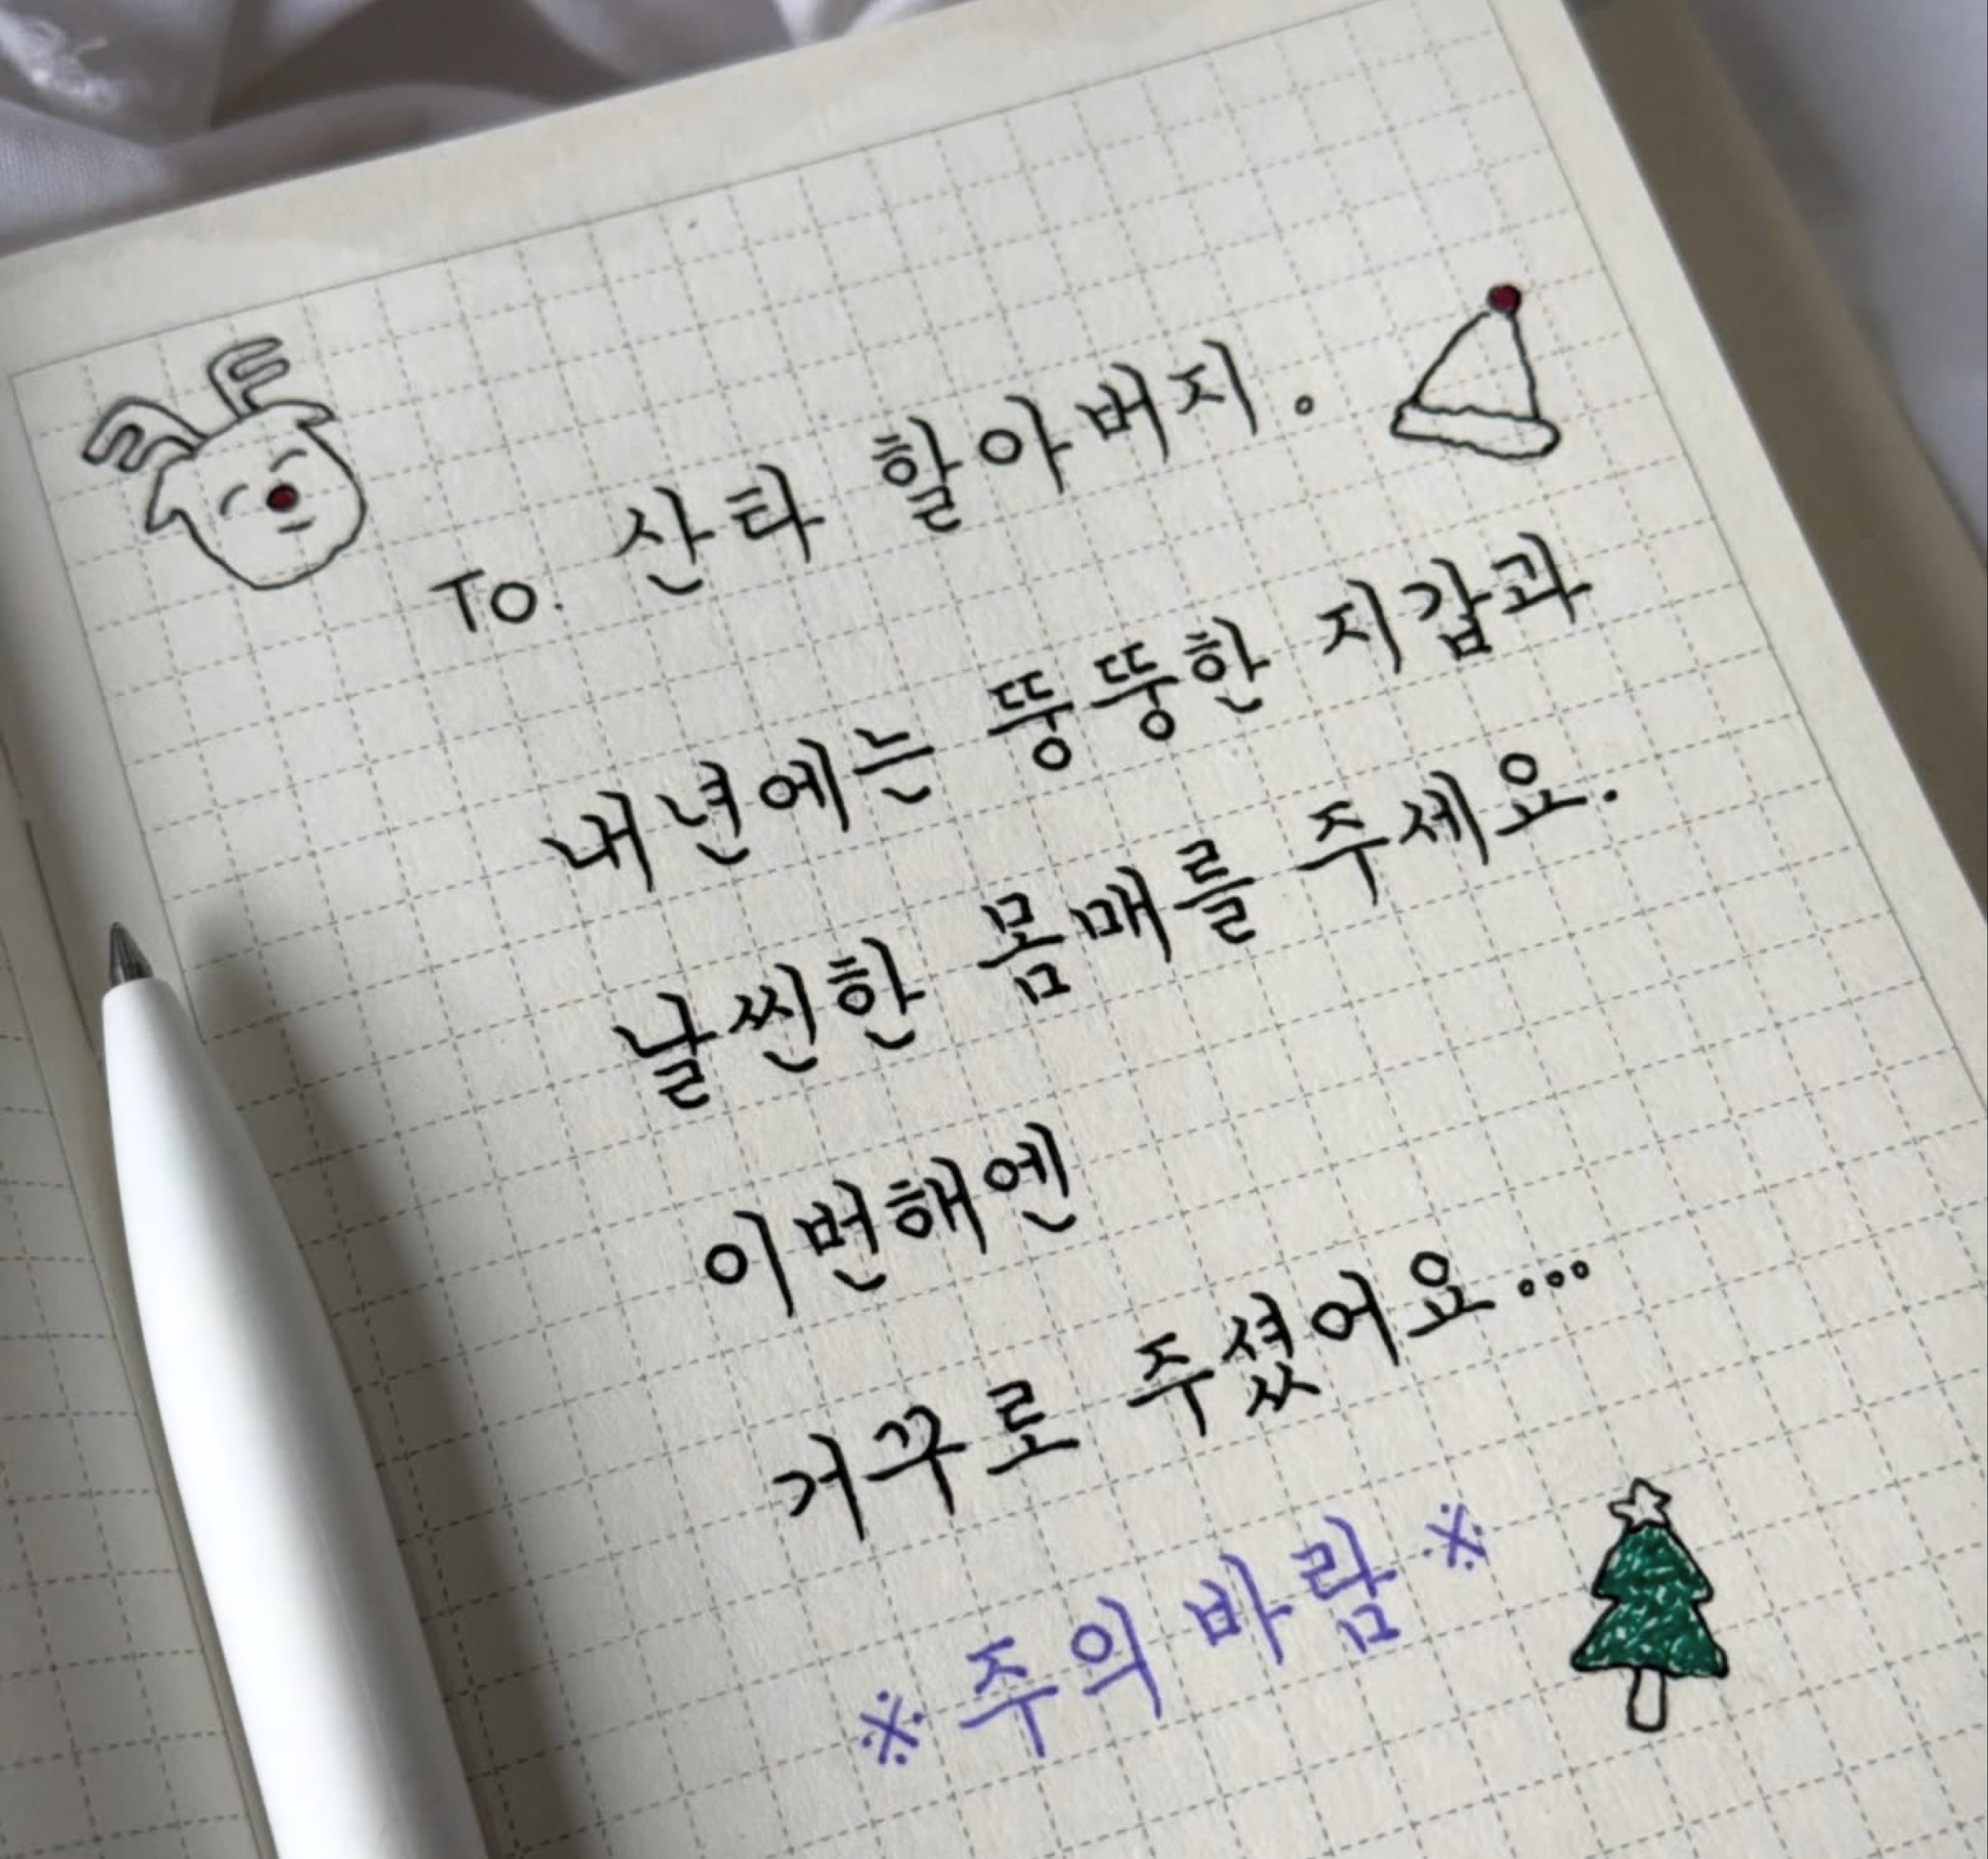 To. 산타 할아버지.
내년에는 뚱뚱한 지갑과
날씬한 몸매를 주세요.
이번해엔
거꾸로 주셨어요...
※ 주의 바람 ※